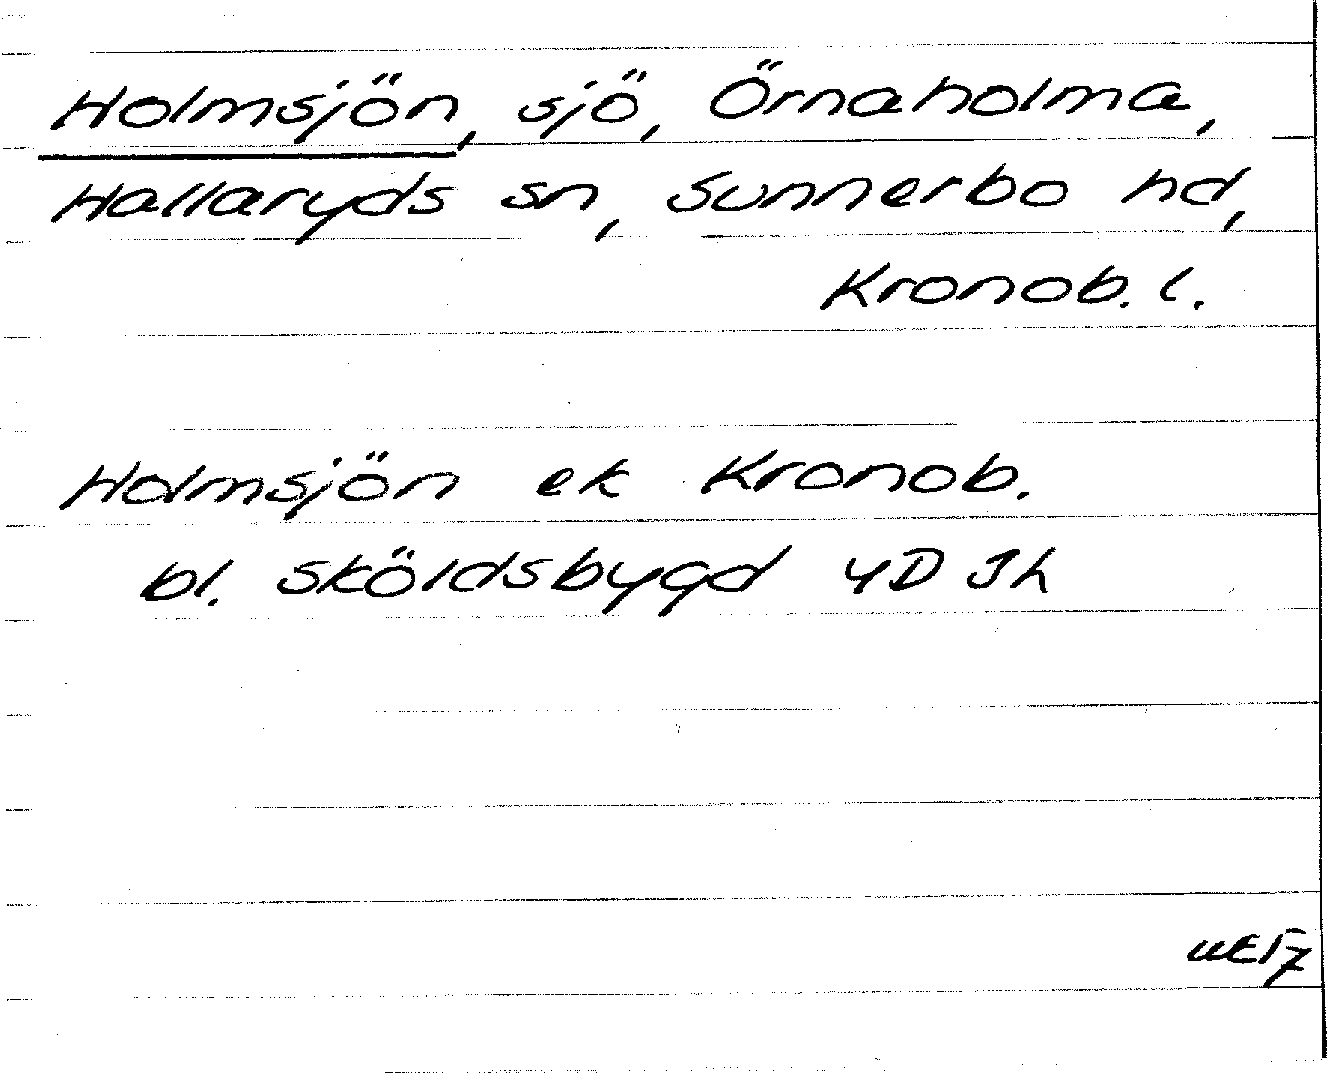 Holmsjön, sjö, Örnaholma,
Hallaryds sn, Sunnerbo hd,
Kronob. l.
Holmsjön ek Kronob.
bl. Sköldsbygd 4D Jh